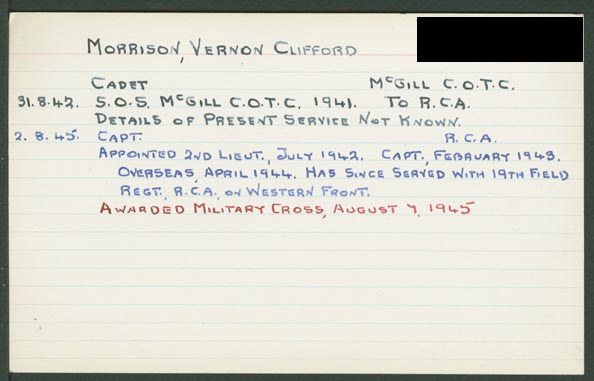 MORRISON, VERNON CLIFFORD
CADET McGILL C.O.T.C.
31.8.42. S.O.S. McGILL C.O.T.C. 1941. TO R.C.A.
DETAILS OF PRESENT SERVICE NOT KNOWN.
2. 8. 45. CAPT. R.C.A.
APPOINTED 2ND LIEUT., JULY 1942. CAPT., FEBRUARY 1943.
OVERSEAS, APRIL 1944. HAS SINCE SERVED WITH 19TH FIELD
REGT., R.C.A., ON WESTERN FRONT.
AWARDED MILITARY CROSS, AUGUST 4, 1945